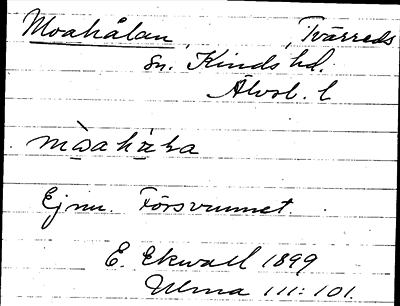 Moahålan, Tvärreds
sn. Kinds hd.
Älvsb. l
mòahàɂa
Ej nu. Försvunnet.
E. Ekwall 1899
Ulma 111:101.